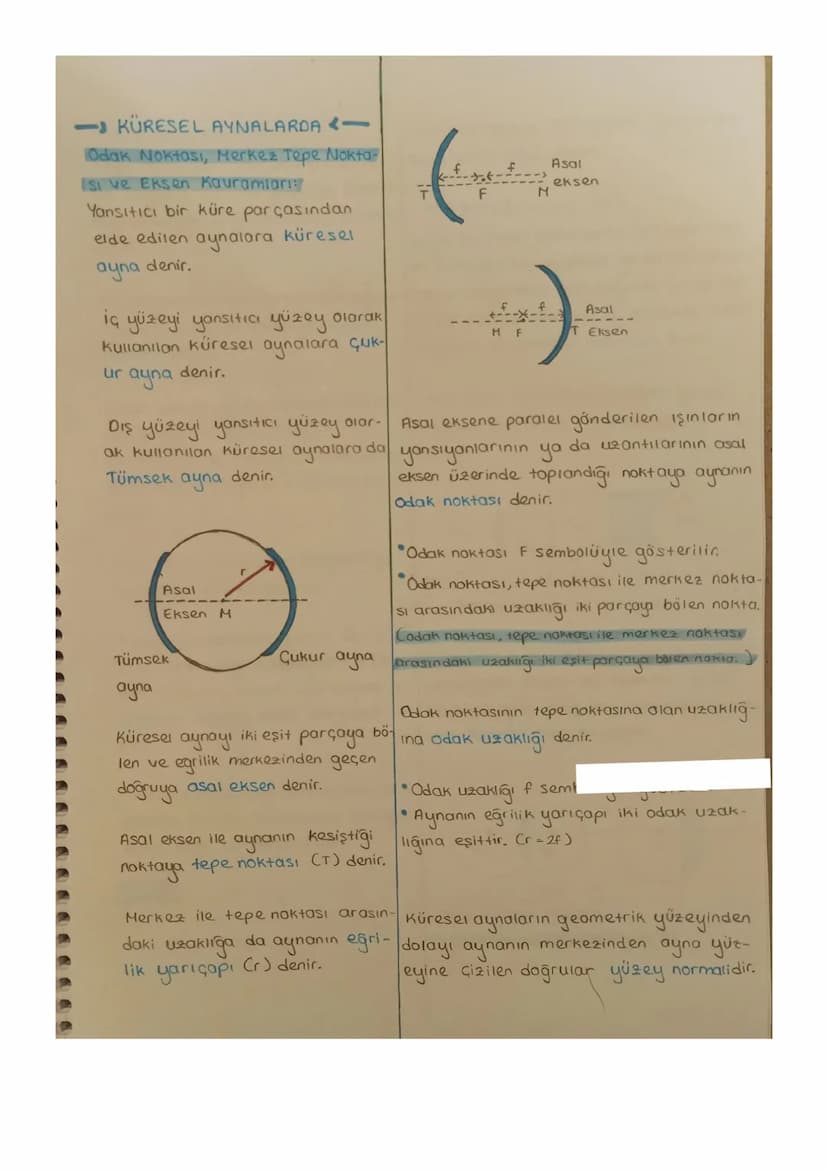 KÜRESEL AYNALARDA
Odak Noktası, Merkez Tepe Nokta-
sı ve Eksen Kavramları:
Yansıtıcı bir küre parçasından
elde edilen aynalara küresel
ayna denir.
İç yüzeyi yansıtıcı yüzey olarak
kullanılan küresel aynalara çuk-
ur ayna denir.
Dış yüzeyi yansıtıcı yüzey olar-
ak kullanılan küresel aynalara da
Tümsek ayna denir.
r
Asal
Eksen M
Tümsek
ayna
Çukur ayna
Küresel aynayı iki eşit parçaya bö-
len ve eğrilik merkezinden geçen
doğruya asal eksen denir.
Asal eksen ile aynanın kesiştiği
noktaya tepe noktası (T) denir.
Merkez ile tepe noktası arasın-
daki uzaklığa da aynanın eğri-
lik yarıçapı (r) denir.
f f Asal
eksen
T F M
f f Asal
M F T Eksen
Asal eksene paralel gönderilen ışınların
yansıyanlarının ya da uzantılarının asal
eksen üzerinde toplandığı noktaya aynanın
Odak noktası denir.
• Odak noktası F sembolüyle gösterilir.
• Odak noktası, tepe noktası ile merkez nokta-
sı arasındaki uzaklığı iki parçayı bölen nokta.
(odak noktası, tepe noktası ile merkez noktası
arasındaki uzaklığı iki eşit parçaya bölen nokta.)
Odak noktasının tepe noktasına olan uzaklığ-
ına odak uzaklığı denir.
• Odak uzaklığı f
• Aynanın eğrilik yarıçapı iki odak uzak-
lığına eşittir. (r = 2f)
Küresel aynaların geometrik yüzeyinden
dolayı aynanın merkezinden ayna yüz-
eyine çizilen doğrular yüzey normalidir.